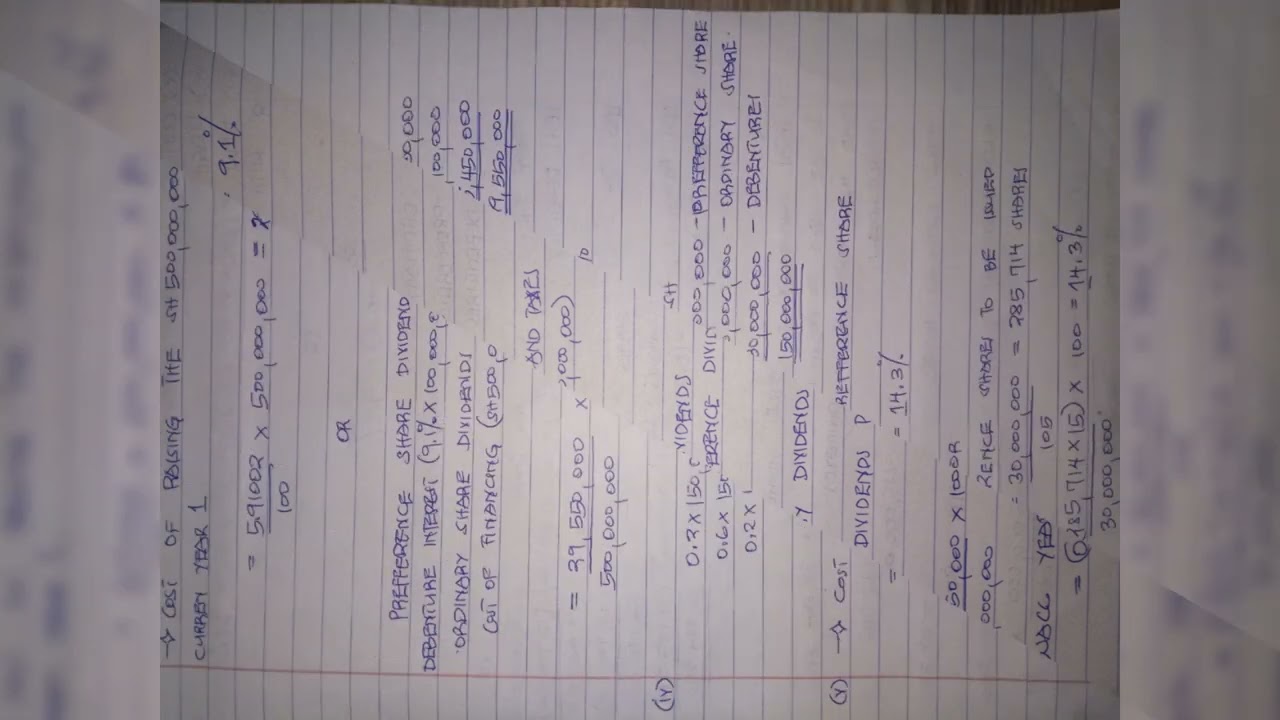 → COST OF RAISING THE SH 500,000,000
CURREN YEAR 1 : 9.1%
= 591002 × 500,000,000 = x
100
OR
PREFFERENCE SHARE DIVIDEND 50,000
DEBENTURE INTEREST (9.1% × 100,000, 100,000
ORDINARY SHARE DIVIDENDS 2,450,000
COST OF FINANCING (SH 500,0 9,550,000
AND TAXES
= 39,550,000 × ,000,000)
500,000,000
(iv) VIDENDS SH
0.2 × 150, 000,000 - PREFFERENCE SHARE
0.6 × 150 ERENCE DIVID ,000,000 - ORDINARY SHARE.
0.2 × 1 30,000,000 - DEBENTURES
150,000,000
.Y DIVIDENDS
(v) → COST REFFERENCE SHARE
DIVIDENDS P
= = 14.3%
50,000 × 100OR
,000,000 ZENCE SHARES TO BE ISSUED
= 30,000,000 = 285,714 SHARES
NACC YEAR 105
= (0.185,714 × 15) × 100 = 14.3%
30,000,000